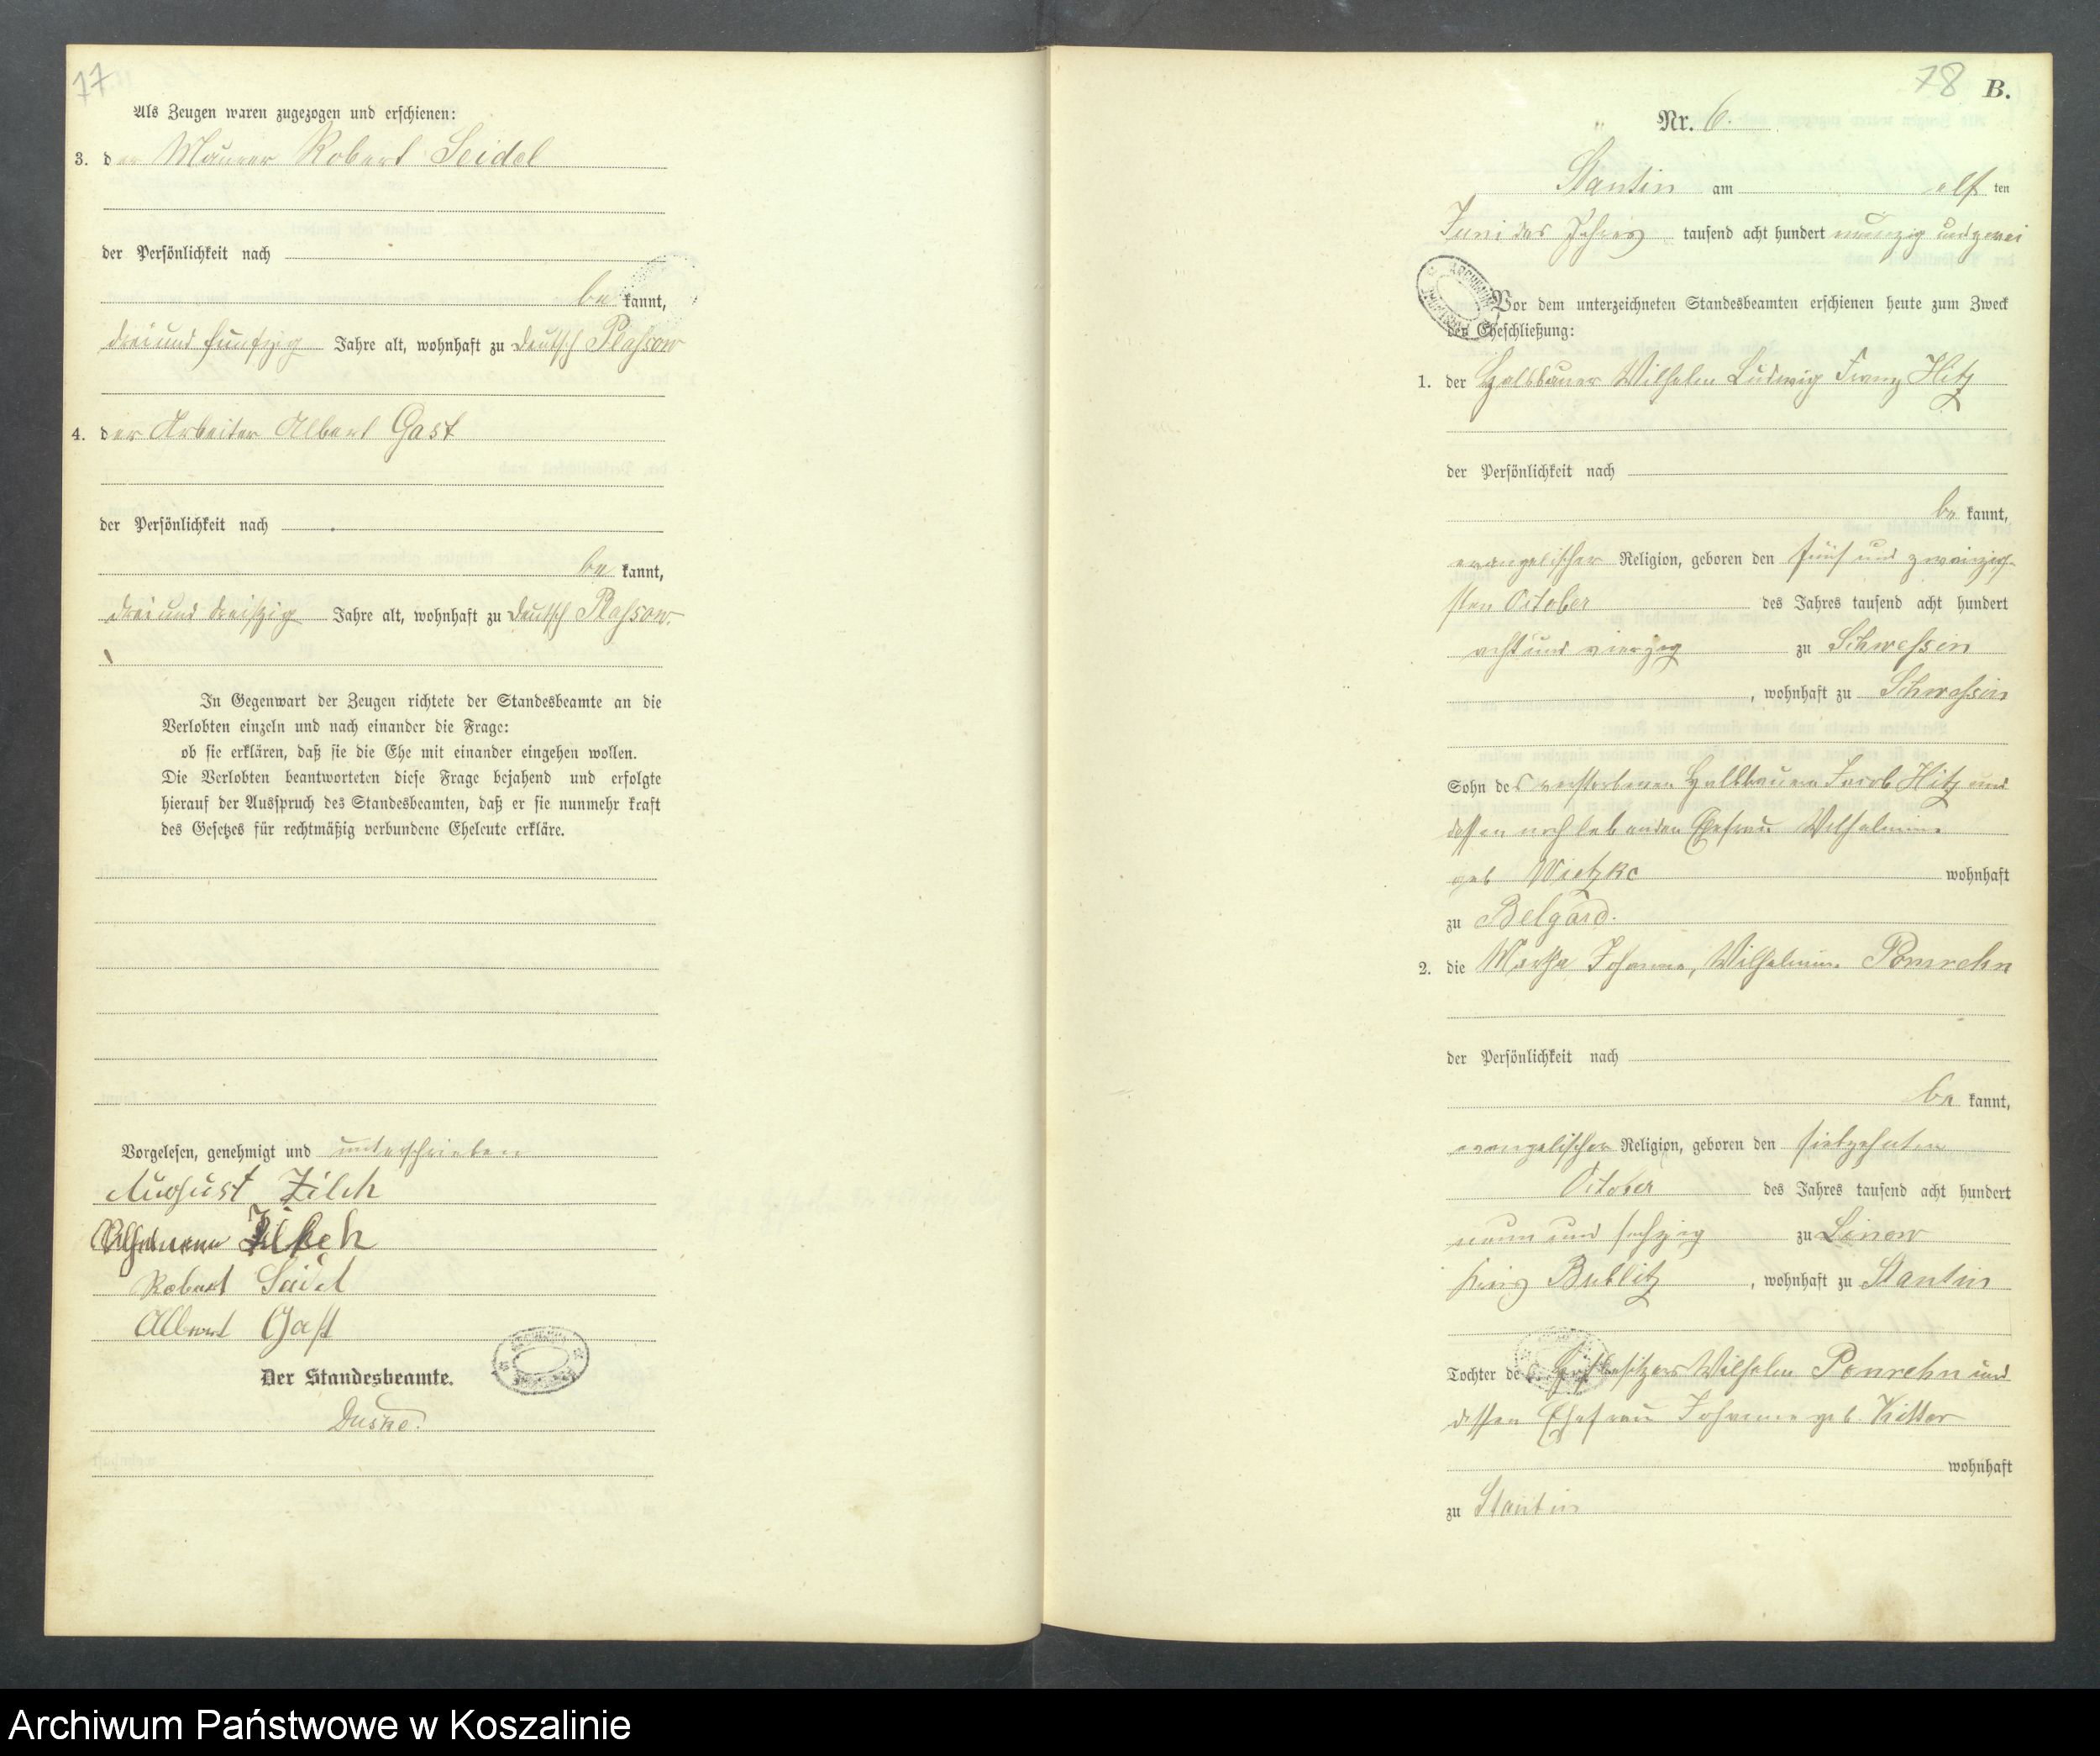 77
Als Zeugen waren zugezogen und erschienen:
3. der Maurer Robert Seidel
der Persönlichkeit nach
be kannt,
drei und funfzig Jahre alt, wohnhaft zu deutsch Plassow
4. der Arbeiter Albert Gast
der Persönlichkeit nach
be kannt,
drei und dreißig Jahre alt, wohnhaft zu deutsch Plassow.
In Gegenwart der Zeugen richtete der Standesbeamte an die
Verlobten einzeln und nach einander die Frage:
ob sie erklären, daß sie die Ehe mit einander eingehen wollen.
Die Verlobten beantworteten diese Frage bejahend und erfolgte
hierauf der Ausspruch des Standesbeamten, daß er sie nunmehr kraft
des Gesetzes für rechtmäßig verbundene Eheleute erkläre.
Vorgelesen, genehmigt und unterschrieben
August Zilch
Zilch
Robert Seidel
Albert Gast
Der Standesbeamte.
Duske.
78 B.
Nr. 6.
Stantin am elf ten
Juni des Jahres tausend acht hundert neunzig und zwei
Vor dem unterzeichneten Standesbeamten erschienen heute zum Zweck
der Eheschließung:
1. der Halbbauer Wilhelm Ludwig Franz Hitz
der Persönlichkeit nach
be kannt,
evangelischer Religion, geboren den fünf und zwanzig-
sten October des Jahres tausend acht hundert
acht und vierzig zu Schwessin
, wohnhaft zu Schwessin
Sohn des verstorbenen Halbbauern Jacob Hitz und
dessen noch lebenden Ehefrau Wilhelmine
geb Wietzke wohnhaft
zu Belgard.
2. die Johanne, Wilhelmine Ponrehn
der Persönlichkeit nach
be kannt,
evangelischer Religion, geboren den siebzehnten
October des Jahres tausend acht hundert
neun und sechzig zu Linow
Kreis Bublitz, wohnhaft zu Stantin
Tochter des Wilhelm Ponrehn und
dessen Ehefrau Johanne geb.
wohnhaft
zu Stantin
Archiwum Państwowe w Koszalinie